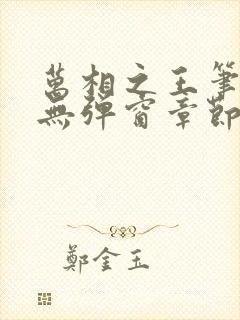 萬相之王筆
無彈窗章節
鄭金玉